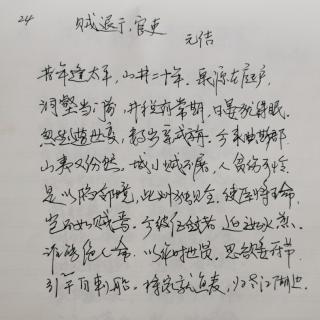 24
贼退示官吏
元结
昔年逢太平，山林二十年。泉源在庭户，
洞壑当门前。井税有常期，日晏犹得眠。
忽然遭世变，数岁亲戎旃。今来典斯郡，
山夷又纷然。城小贼不屠，人贫伤可怜。
是以陷邻境，此州独见全。使臣将王命，
岂不如贼焉。今彼征敛者，迫之如火煎。
谁能绝人命，以作时世贤。思欲委符节，
引竿自刺船。将家就鱼麦，归老江湖边。